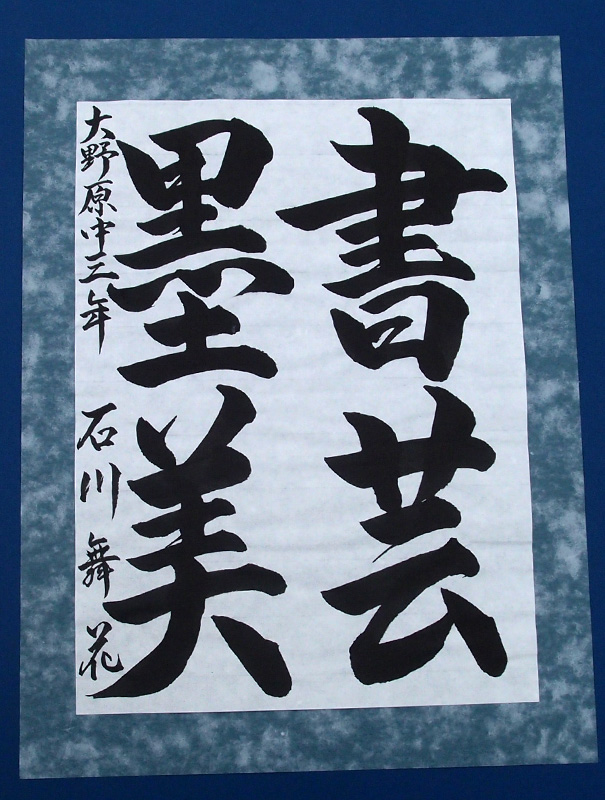 書芸
墨美
大野原中三年 石川舞花